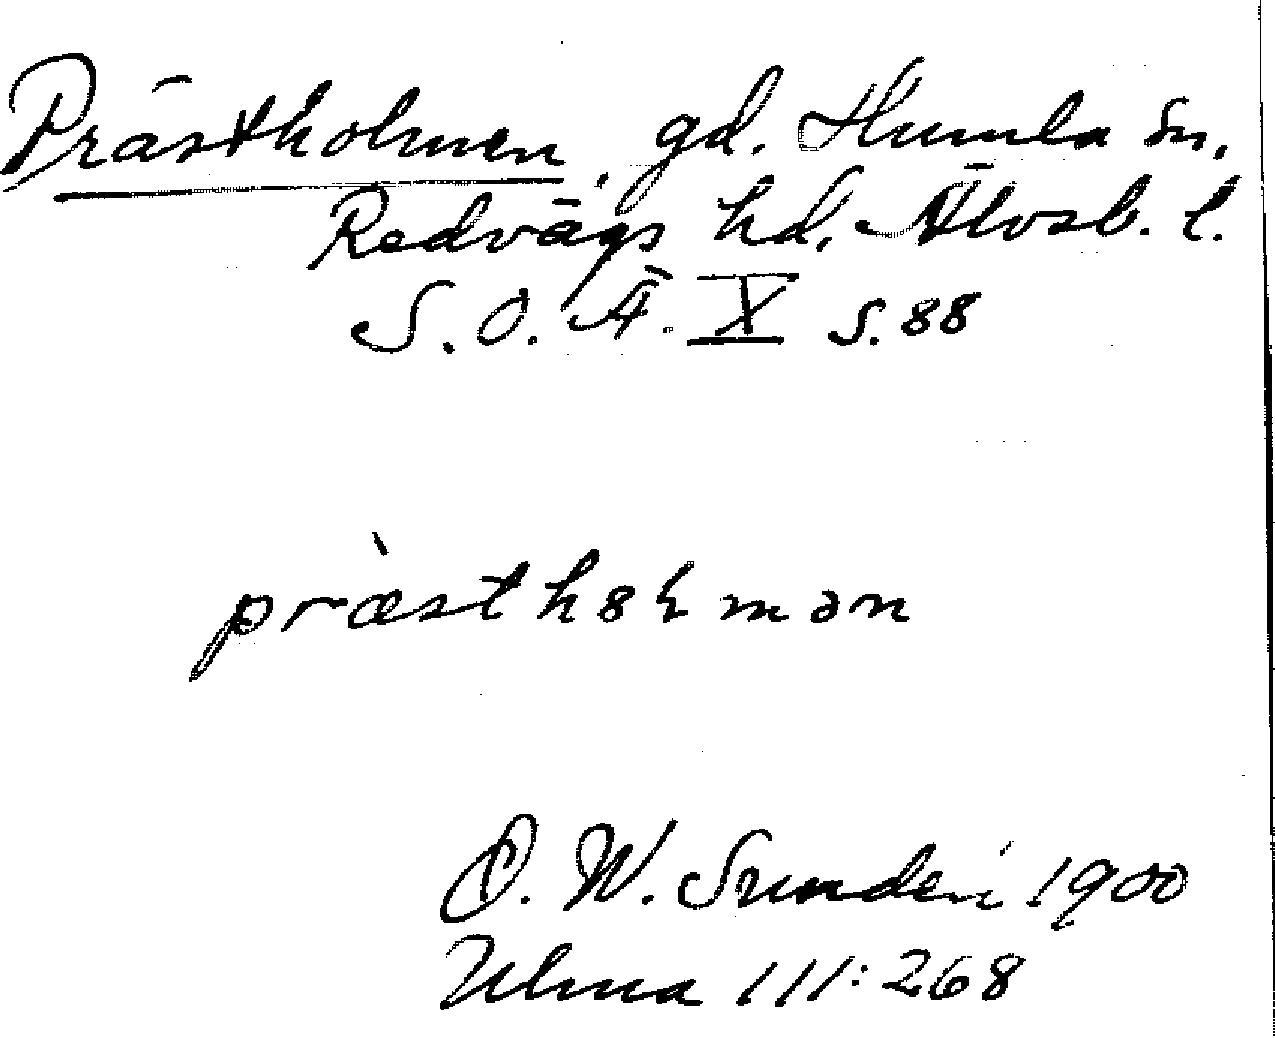 Prästholmen, gd. Humla sn,
Redvägs hd, Älvsb. l.
S. O. Ä. X s. 88
præsth8ɬmən
D. W. Sundén 1900
Ulma 111:268